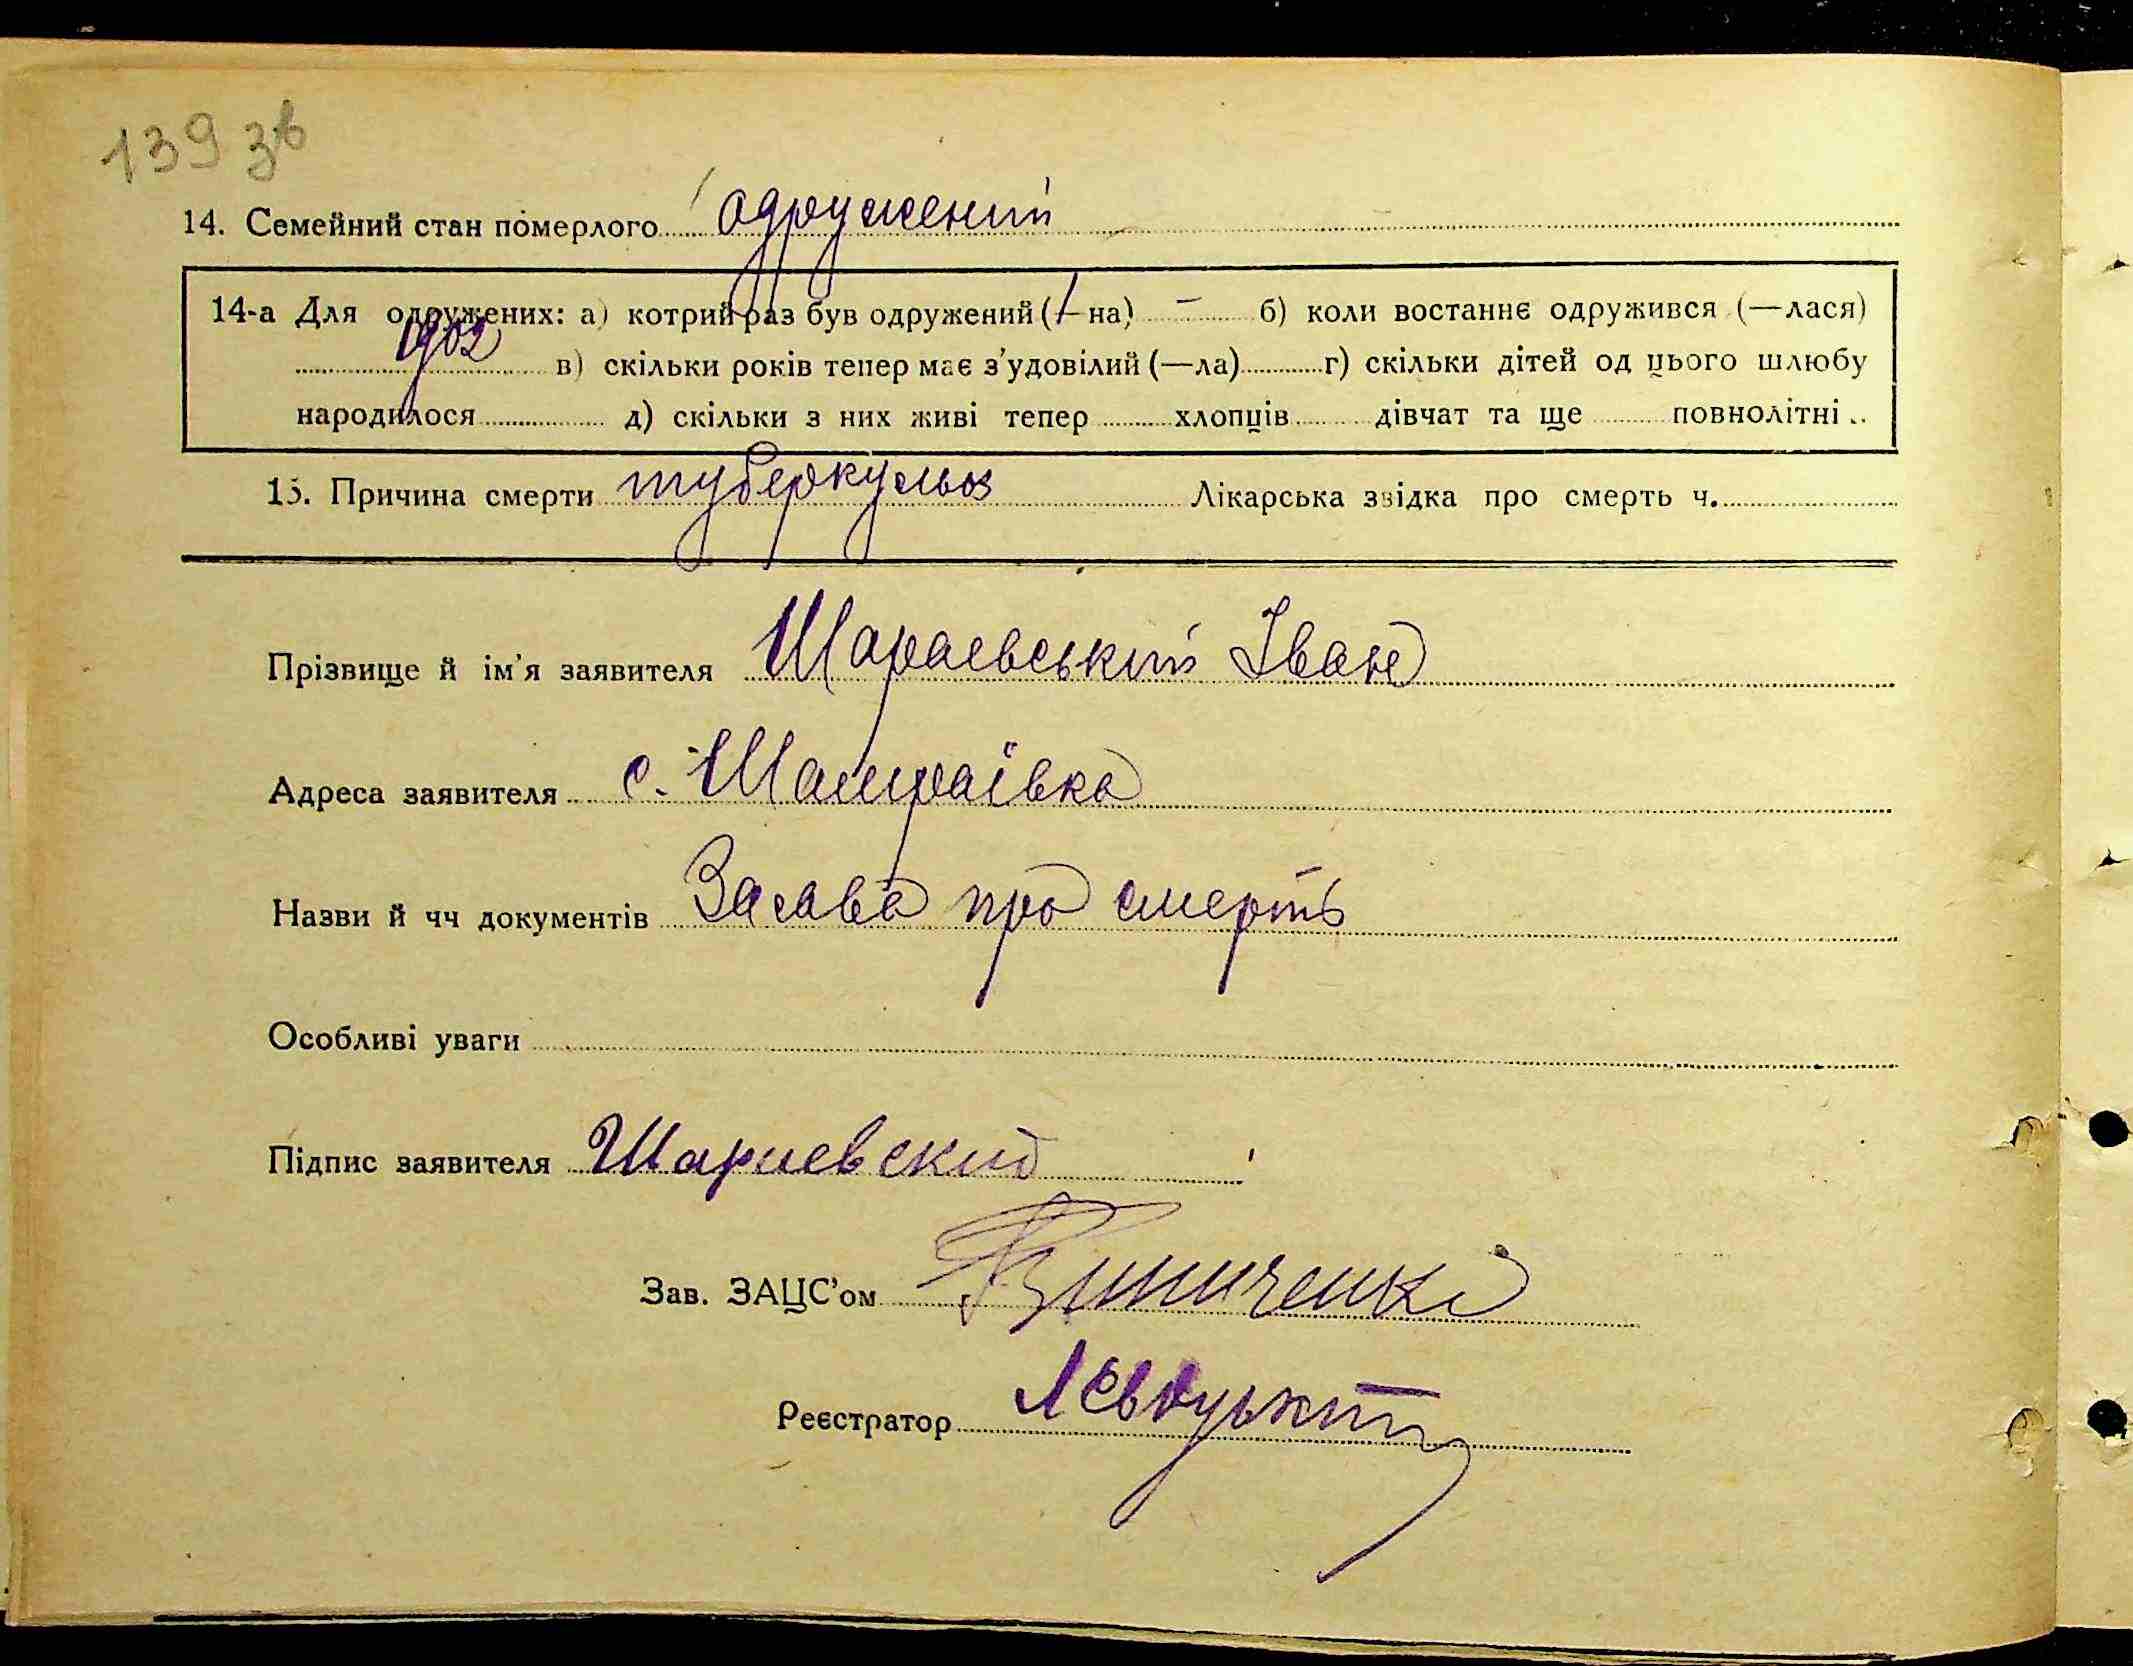 139 зв
14. Семейний стан померлого одружений
14-а Для одружених: а) котрий раз був одружений (—на) — б) коли востаннє одружився (—лася)
1902 в) скільки років тепер має з'удовілий (—ла) г) скільки дітей од цього шлюбу
народилося д) скільки з них живі тепер хлопців дівчат та ще повнолітні
15. Причина смерти туберкульоз Лікарська звідка про смерть ч.
Прізвище й ім'я заявителя Шараевський Іван
Адреса заявителя с. Шамраївка
Назви й чч документів Заява про смерть
Особливі уваги
Підпис заявителя Шариевский
Зав. ЗАЦС'ом Винниченко
Реєстратор